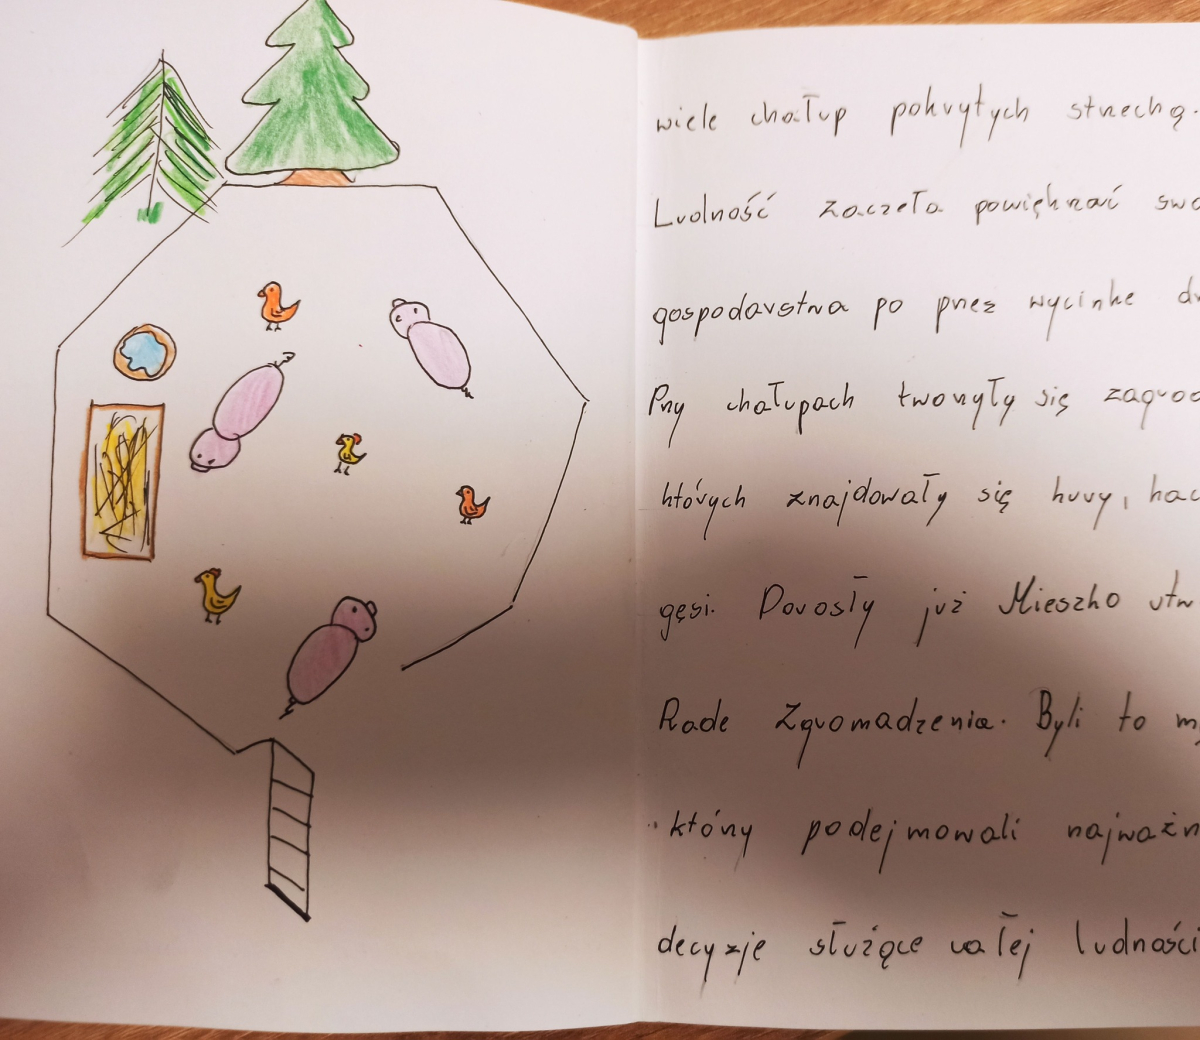 wiele chałup pokrytych strzechą.
Ludność zaczęła powiększać swo
gospodarstwa po przez wycinkę dr
Przy chałupach tworzyły się zagrod
których znajdowały się kury, kac
gęsi. Dorosły już Mieszko utw
Radę Zgromadzenia. Byli to m
który podejmowali najważn
decyzje służące całej ludności